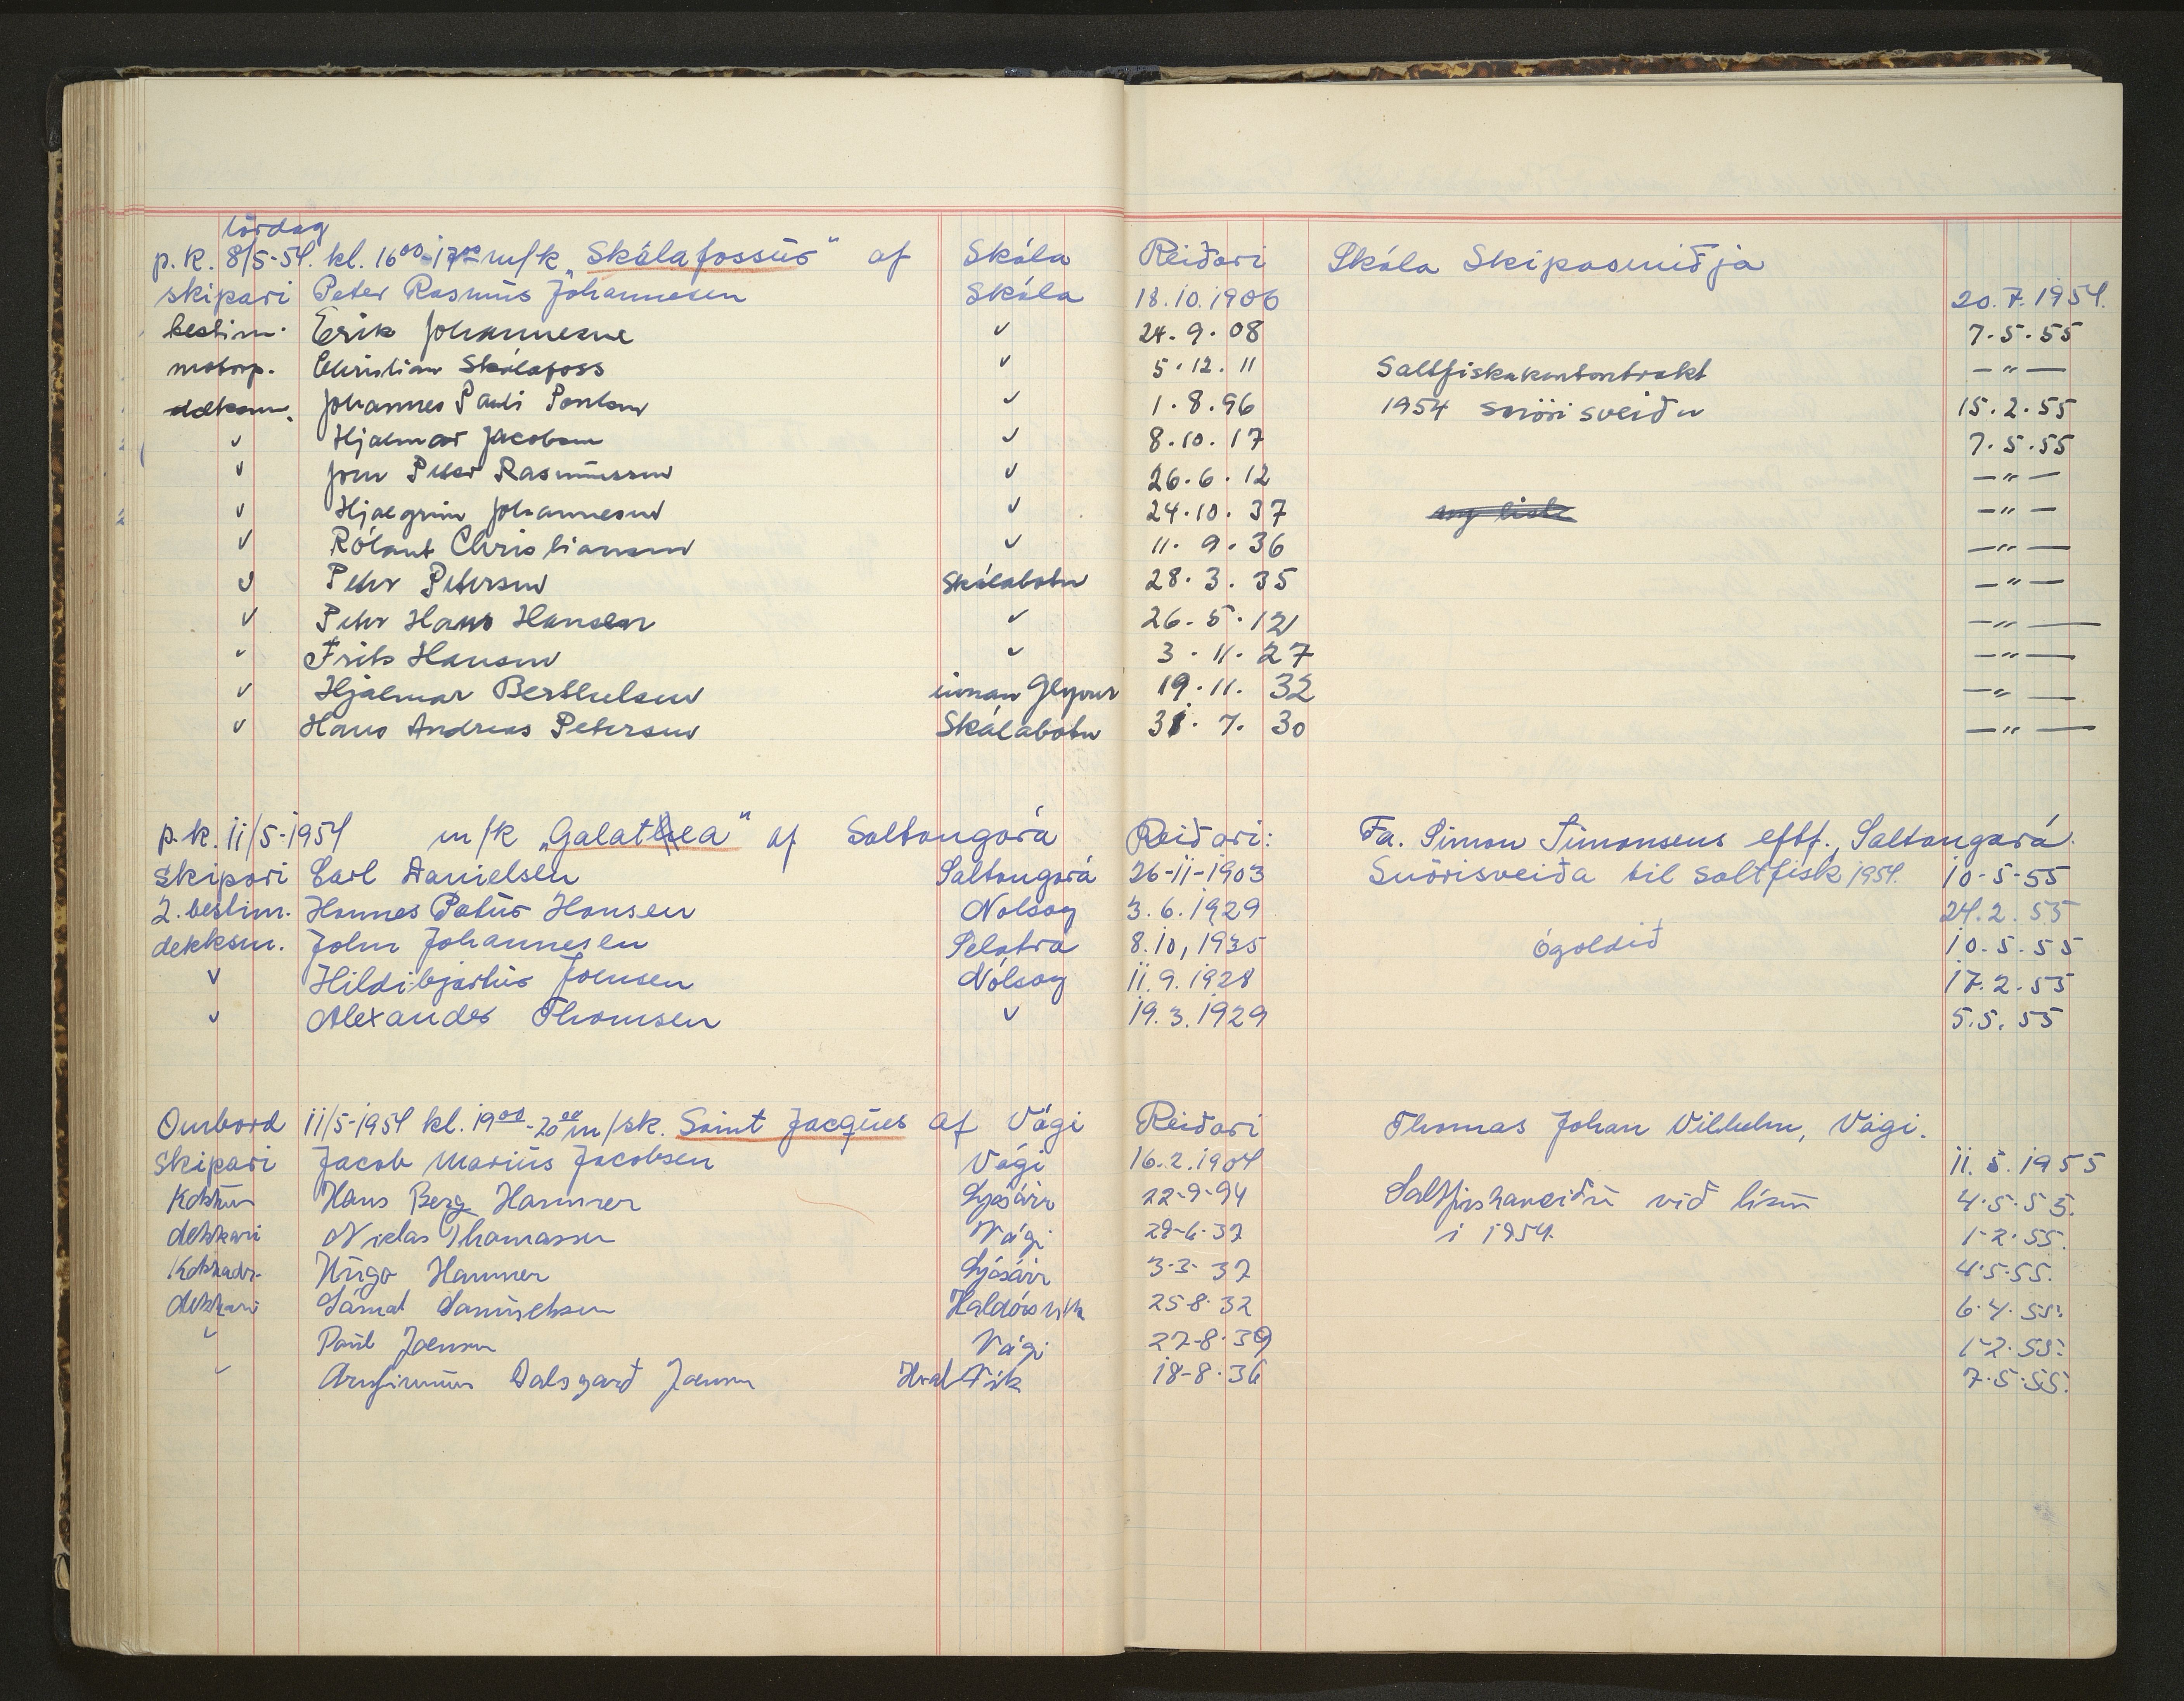 lördag
p.k. 8/5-54. kl. 16⁰⁰-17⁰⁰ m/k „Skálafossur“ af Skála Reiðari Skála Skipasmiðja
skipari Peter Rasmus Johannesen Skála 18.10.1906 20.7.1954.
bestim. Erik Johannesen ✓ 24.9.08 7.5.55
motorp. Christian Skálafoss ✓ 5.12.11 Saltfiskakontontrakt —〃—
dekksm. Johannes Pauli Poulsen ✓ 1.8.96 1954 snörisveiðu 15.2.55
✓ Hjalmar Jacobsen ✓ 8.10.17 7.5.55
✓ Jon Peter Rasmussen ✓ 26.6.12 —〃—
✓ Hjalgrim Johannesen ✓ 24.10.37 ny liste —〃—
✓ Rólant Christiansen ✓ 11.9.36 —〃—
✓ Petur Petersen Skálabotn 28.3.35 —〃—
✓ Petur Hans Hansen ✓ 26.5.12 —〃—
✓ Frits Hansen ✓ 3.11.27 —〃—
✓ Hjalmar Berthelsen innan Glyvur 19.11.32 —〃—
✓ Hans Andreas Petersen Skálabotn 31.7.30 —〃—
p.k. 11/5-1954 m/k „Galathea“ af Saltangará Reiðari: Fa. Simon Simonsens eftf., Saltangará.
skipari Carl Danielsen Saltangará 26-11-1903 Snörisveiða til saltfisk 1954. 10-5-55
2. bestim. Hannes Petur Hansen Nolsoy 3.6.1929 24.2.55
dekksm. John Johannesen Selatra 8.10,1935 ógoldið 10.5.55
✓ Hildibjartur Joensen Nólsoy 11.9.1928 17.2.55
✓ Alexander Thomsen ✓ 19.3.1929 5.5.55
Ombord 11/5-1954 kl. 19⁰⁰-20⁰⁰ m/sk. Saint Jacques af Vági Reiðari Thomas Johan Vilhelm, Vági.
Skipari Jacob Marius Jacobsen Vági 16.2.1904 11.5.1955
Hans Berg Hammer Ljósáir 22-9-94 Saltfiskaveiðu við línu 4.5.55.
dekkari Niclas Thomassen Vági 28-6-37 i 1954. 1-2.55.
Hugo Hammer Ljósáir 3-3-37 4.5.55.
dekkari Sámal Samuelsen Haldórsvík 25-8-32 6.4.55.
✓ Paul Joensen Vági 27-8-39 1-2.55.
✓ Arnfinnur Dalsgarð Joensen Hvalvík 18-8-36 7.5.55.